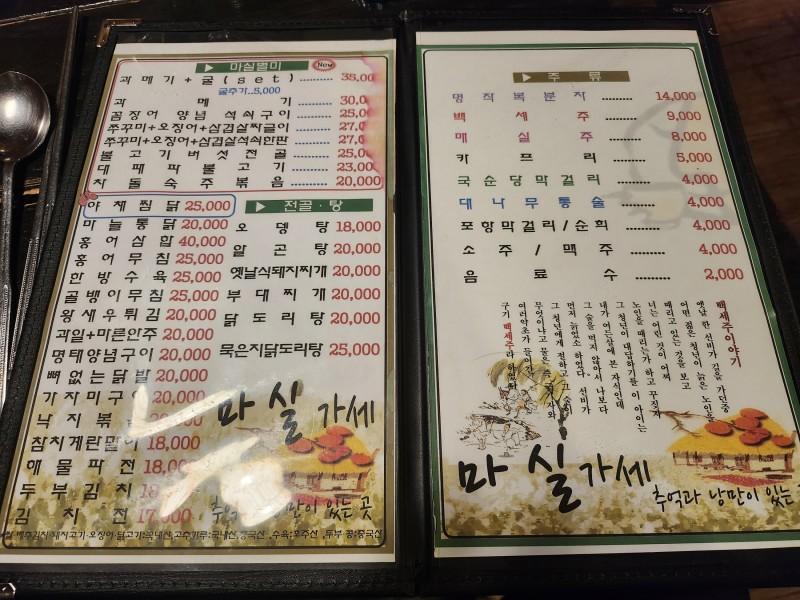 마실별미
New
과메기+굴(set) ......... 35,00
굴추가..5,000
과 메 기 ......... 30,0
꼼장어 양념 석쇠구이 ......... 25,0
쭈꾸미+오징어+삼겹살짜글이 ......... 27,0
쭈꾸미+오징어+삼겹살석쇠한판 ......... 27,0
불고기버섯전골 ......... 25,0
대패파불고기 ......... 23,00
차돌숙주볶음 ......... 20,000
야채찜닭 25,000
마늘통닭 20,000
홍어삼합 40,000
홍어무침 25,000
한방수육 25,000
골뱅이무침 25,000
왕새우튀김 20,000
과일+마른안주 20,000
명태양념구이 20,000
뼈없는닭발 20,000
가자미구이 20,000
낙지볶 20,000
참치계란말이 18,000
해물파전 18,000
두부김치 18
김치전 17,000
전골·탕
오뎅탕 18,000
알곤탕 20,000
옛날식돼지찌개 20,000
부대찌개 20,000
닭도리탕 20,000
묵은지닭도리탕 25,000
마실가세
추억 만이 있는 곳
배추김치·돼지고기·오징어·닭고기:국내산,고추가루:국내산,중국산 ,수육:호주산 ,두부 콩:중국산
주 류
명작복분자 ......... 14,000
백세주 ......... 9,000
매실주 ......... 8,000
카프리 ......... 5,000
국순당막걸리 ......... 4,000
대나무통술 ......... 4,000
포항막걸리/순희 ......... 4,000
소주/맥주 ......... 4,000
음료수 ......... 2,000
백세주이야기
옛날 한 선비가 길을 가던중
어떤 젊은 청년이 늙은 노인을
때리고 있는 것을 보고
너는 어떤 것이 어찌
노인을 때리는가 하고 꾸짖자
그 청년이 대답하기를 이 아이는
내가 여든살에 본 자식인데
그 술을 먹지 않아서 나보다
먼저 늙었소 하였다. 선비가
그 청년에게 절하고 그 술이
무엇이냐고 물은
여러약초가 들어간
구기 백세주라 하였다
마실가세
추억과 낭만이 있는